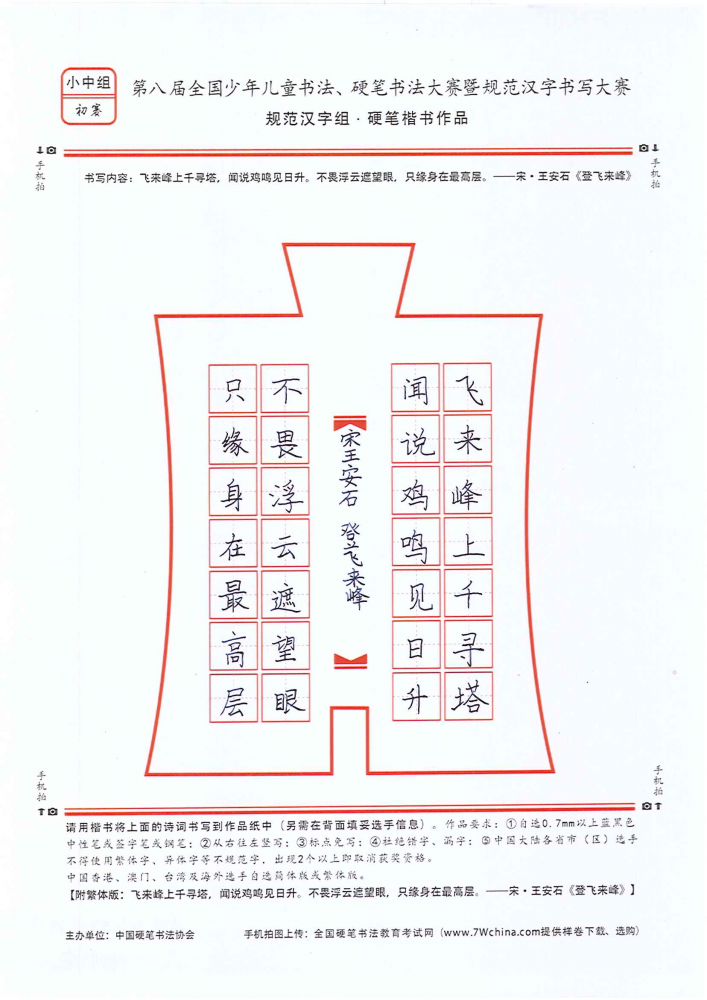 小中组
初赛
第八届全国少年儿童书法、硬笔书法大赛暨规范汉字书写大赛
规范汉字组·硬笔楷书作品
手机拍
手机拍
书写内容：飞来峰上千寻塔，闻说鸡鸣见日升。不畏浮云遮望眼，只缘身在最高层。——宋·王安石《登飞来峰》
飞来峰上千寻塔
闻说鸡鸣见日升
宋王安石 登飞来峰
不畏浮云遮望眼
只缘身在最高层
手机拍
手机拍
请用楷书将上面的诗词书写到作品纸中（另需在背面填妥选手信息）。作品要求：①自选0.7mm以上蓝黑色
中性笔或签字笔或钢笔；②从右往左竖写；③标点免写；④杜绝错字、漏字；⑤中国大陆各省市（区）选手
不得使用繁体字、异体字等不规范字，出现2个以上即取消获奖资格。
中国香港、澳门、台湾及海外选手自选简体版或繁体版。
【附繁体版：飞来峰上千寻塔，闻说鸡鸣见日升。不畏浮云遮望眼，只缘身在最高层。——宋·王安石《登飞来峰》】
主办单位：中国硬笔书法协会 手机拍图上传：全国硬笔书法教育考试网（www.7Wchina.com提供样卷下载、选购）